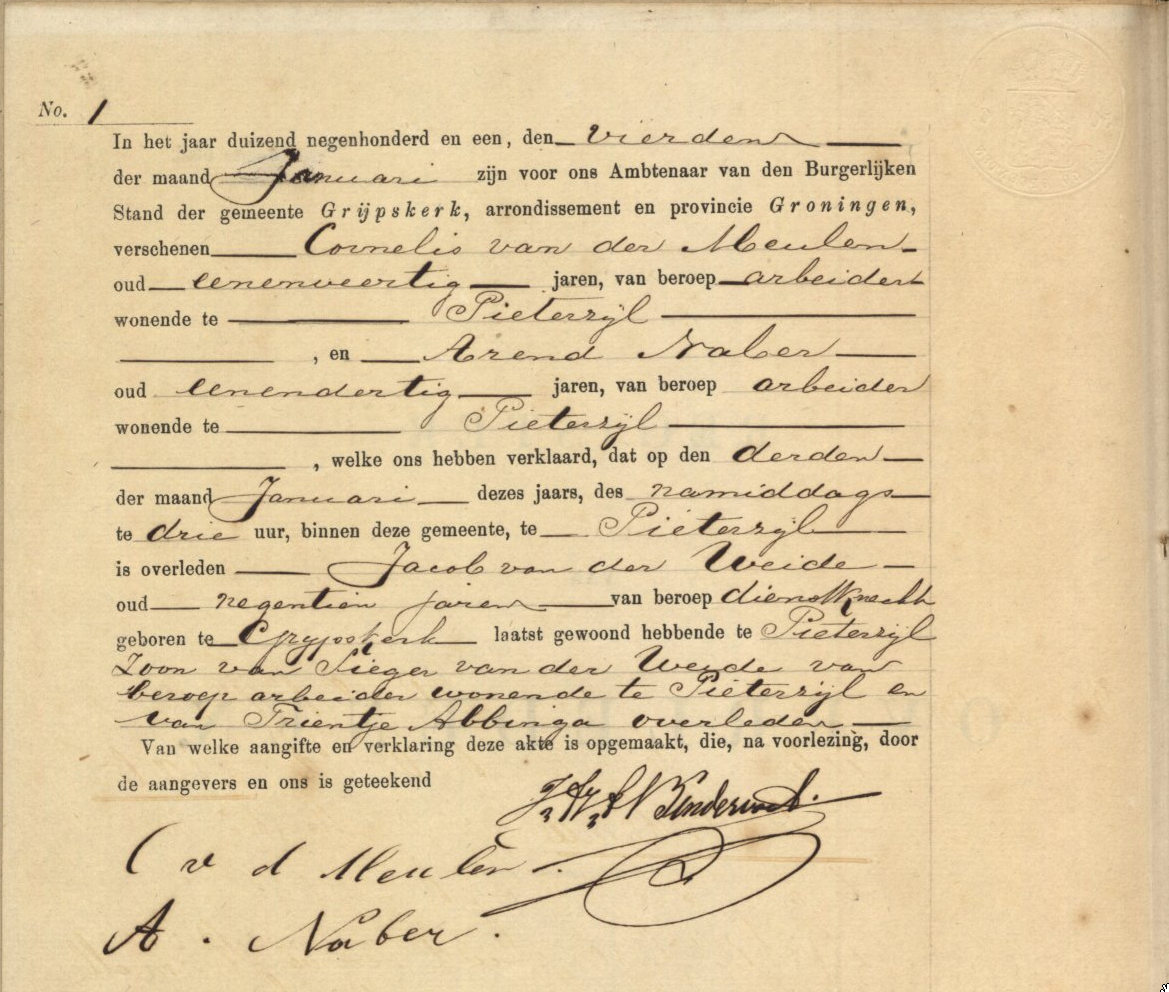 No. 1
In het jaar duizend negenhonderd en een, den vierden
der maand Januari zijn voor ons Ambtenaar van den Burgerlijken
Stand der gemeente Grijpskerk, arrondissement en provincie Groningen,
verschenen Cornelis van der Meulen
oud eenenveertig jaren, van beroep arbeider
wonende te Pieterzijl
, en Arend Naber
oud eenendertig jaren, van beroep arbeider
wonende te Pieterzijl
, welke ons hebben verklaard, dat op den derden
der maand Januari dezes jaars, des namiddags
te drie uur, binnen deze gemeente, te Pieterzijl
is overleden Jacob van der Weide
oud negentien jaren van beroep dienstknecht
geboren te Grijpskerk laatst gewoond hebbende te Pieterzijl
Zoon van Sieger van der Weide van
beroep arbeider wonende te Pieterzijl en
van Trientje Abbinga overleden
Van welke aangifte en verklaring deze akte is opgemaakt, die, na voorlezing, door
de aangevers en ons is geteekend
C v d Meulen.
A. Naber.